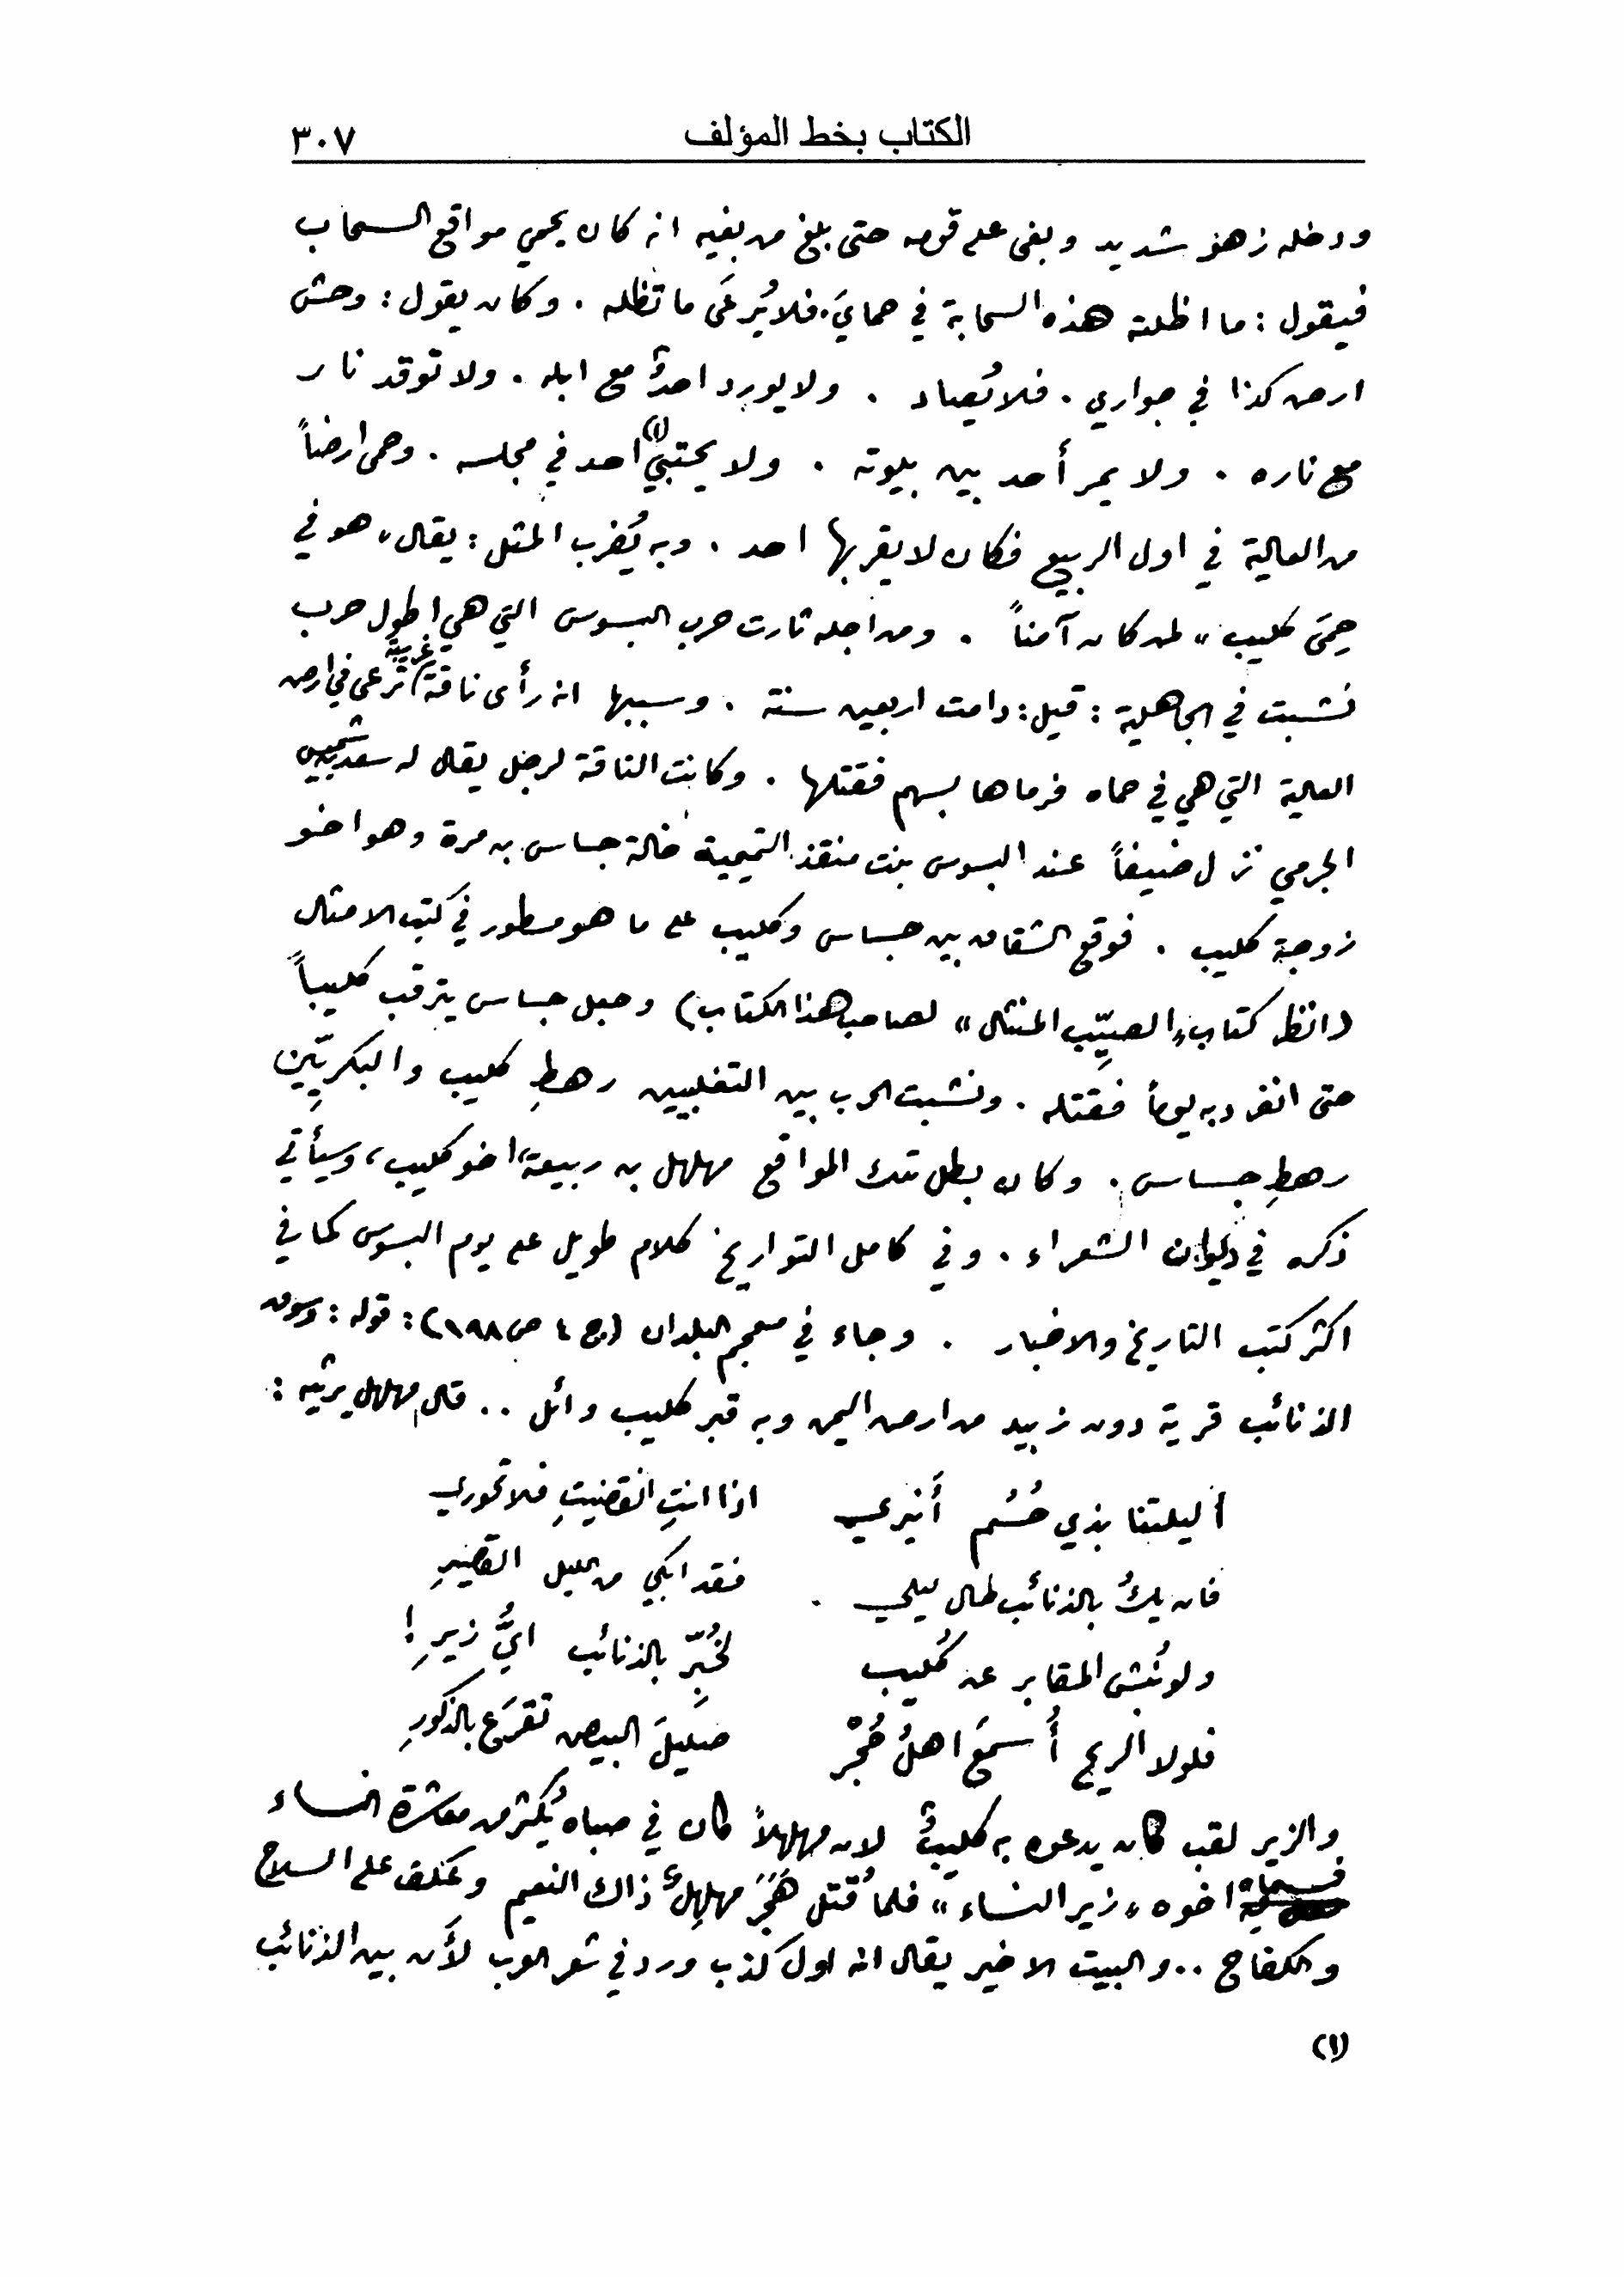 الكتاب بخط المؤلف ٣٠٧
ودخله زهو شديد وبغى على قومه حتى بلغ من بغيه انه كان يحمي مواقع السحاب
فيقول : ما اظلته هذه السحابة في حمايَ. فلا يُرعَى ما تظله . وكان يقول : وحش
ارض كذا في جواري . فلا يُصاد . ولا يورد احدٌ مع ابله . ولا توقد نار
مع ناره . ولا يمر أحد بين بيوته . ولا يحتبي(١) احد في مجلسه . وحمى ارضاً
من العالية في اول الربيع فكان لا يقربها احد . وبه يُضرب المثل : يقال « هو في
حِمَى كليب » لمن كان آمناً . ومن اجله ثارت حرب البسوس التي هي اطول حرب
نشبت في الجاهلية : قيل : دامت اربعين سنة . وسببها انه رأى ناقة غريبة ترعى في ارض
العالية التي هي في حماه فرماها بسهم فقتلها . وكانت الناقة لرجل يقال له سعد بن شميس
الجرمي نزل ضيفاً عند البسوس بنت منقذ التميمية خالة جساس بن مرة وهو اخو
زوجة كليب . فوقع الشقاق بين جساس وكليب على ما هو مسطور في كتب الامثال
(انظر كتاب « الصيِّب المنثال » لصاحب هذا الكتاب) وجعل جساس يترقب كليباً
حتى انفرد به يوماً فقتله . ونشبت الحرب بين التغلبيين رهطِ كليب والبكريِّين
رهطِ جساس . وكان بطل تلك المواقع مهلهل بن ربيعة، اخو كليب، وسيأتي
ذكره في ديوان الشعراء . وفي كامل التواريخ كلام طويل على يوم البسوس كما في
اكثر كتب التاريخ والاخبار . وجاء في معجم البلدان (ج ٤ ص ١٩٨) : قوله : وسوق
الذنائب قرية دون زبيد من ارض اليمن وبه قبر كليب وائل .. قال مهلهل يرثيه :
أليلتنا بذي حُسُم أنيري اذا انتِ انقضيتِ فلا تحوري
فان يكُ بالذنائب طال ليلي . فقد ابكي من الليل القصيرِ
ولو نُبش المقابر عن كُليب لخُبِّر بالذنائب ايُّ زيرِ !
فلولا الريح أُسمَعَ اهلُ حُجْر صليلَ البيض تقرَع بالذكورِ
والزير لقب كان يدعوه به كليبٌ لان مهلهلاً كان في صباه يُكثر من معاشرة النساء
فسماه اخوه « زير النساء » فلما قُتل هَجَرَ مهلهِلٌ ذاك النعيم وعكف على السلاح
والكفاح .. والبيت الاخير يقال انه اول كذب ورد في شعر العرب لأن بين الذنائب
(١)